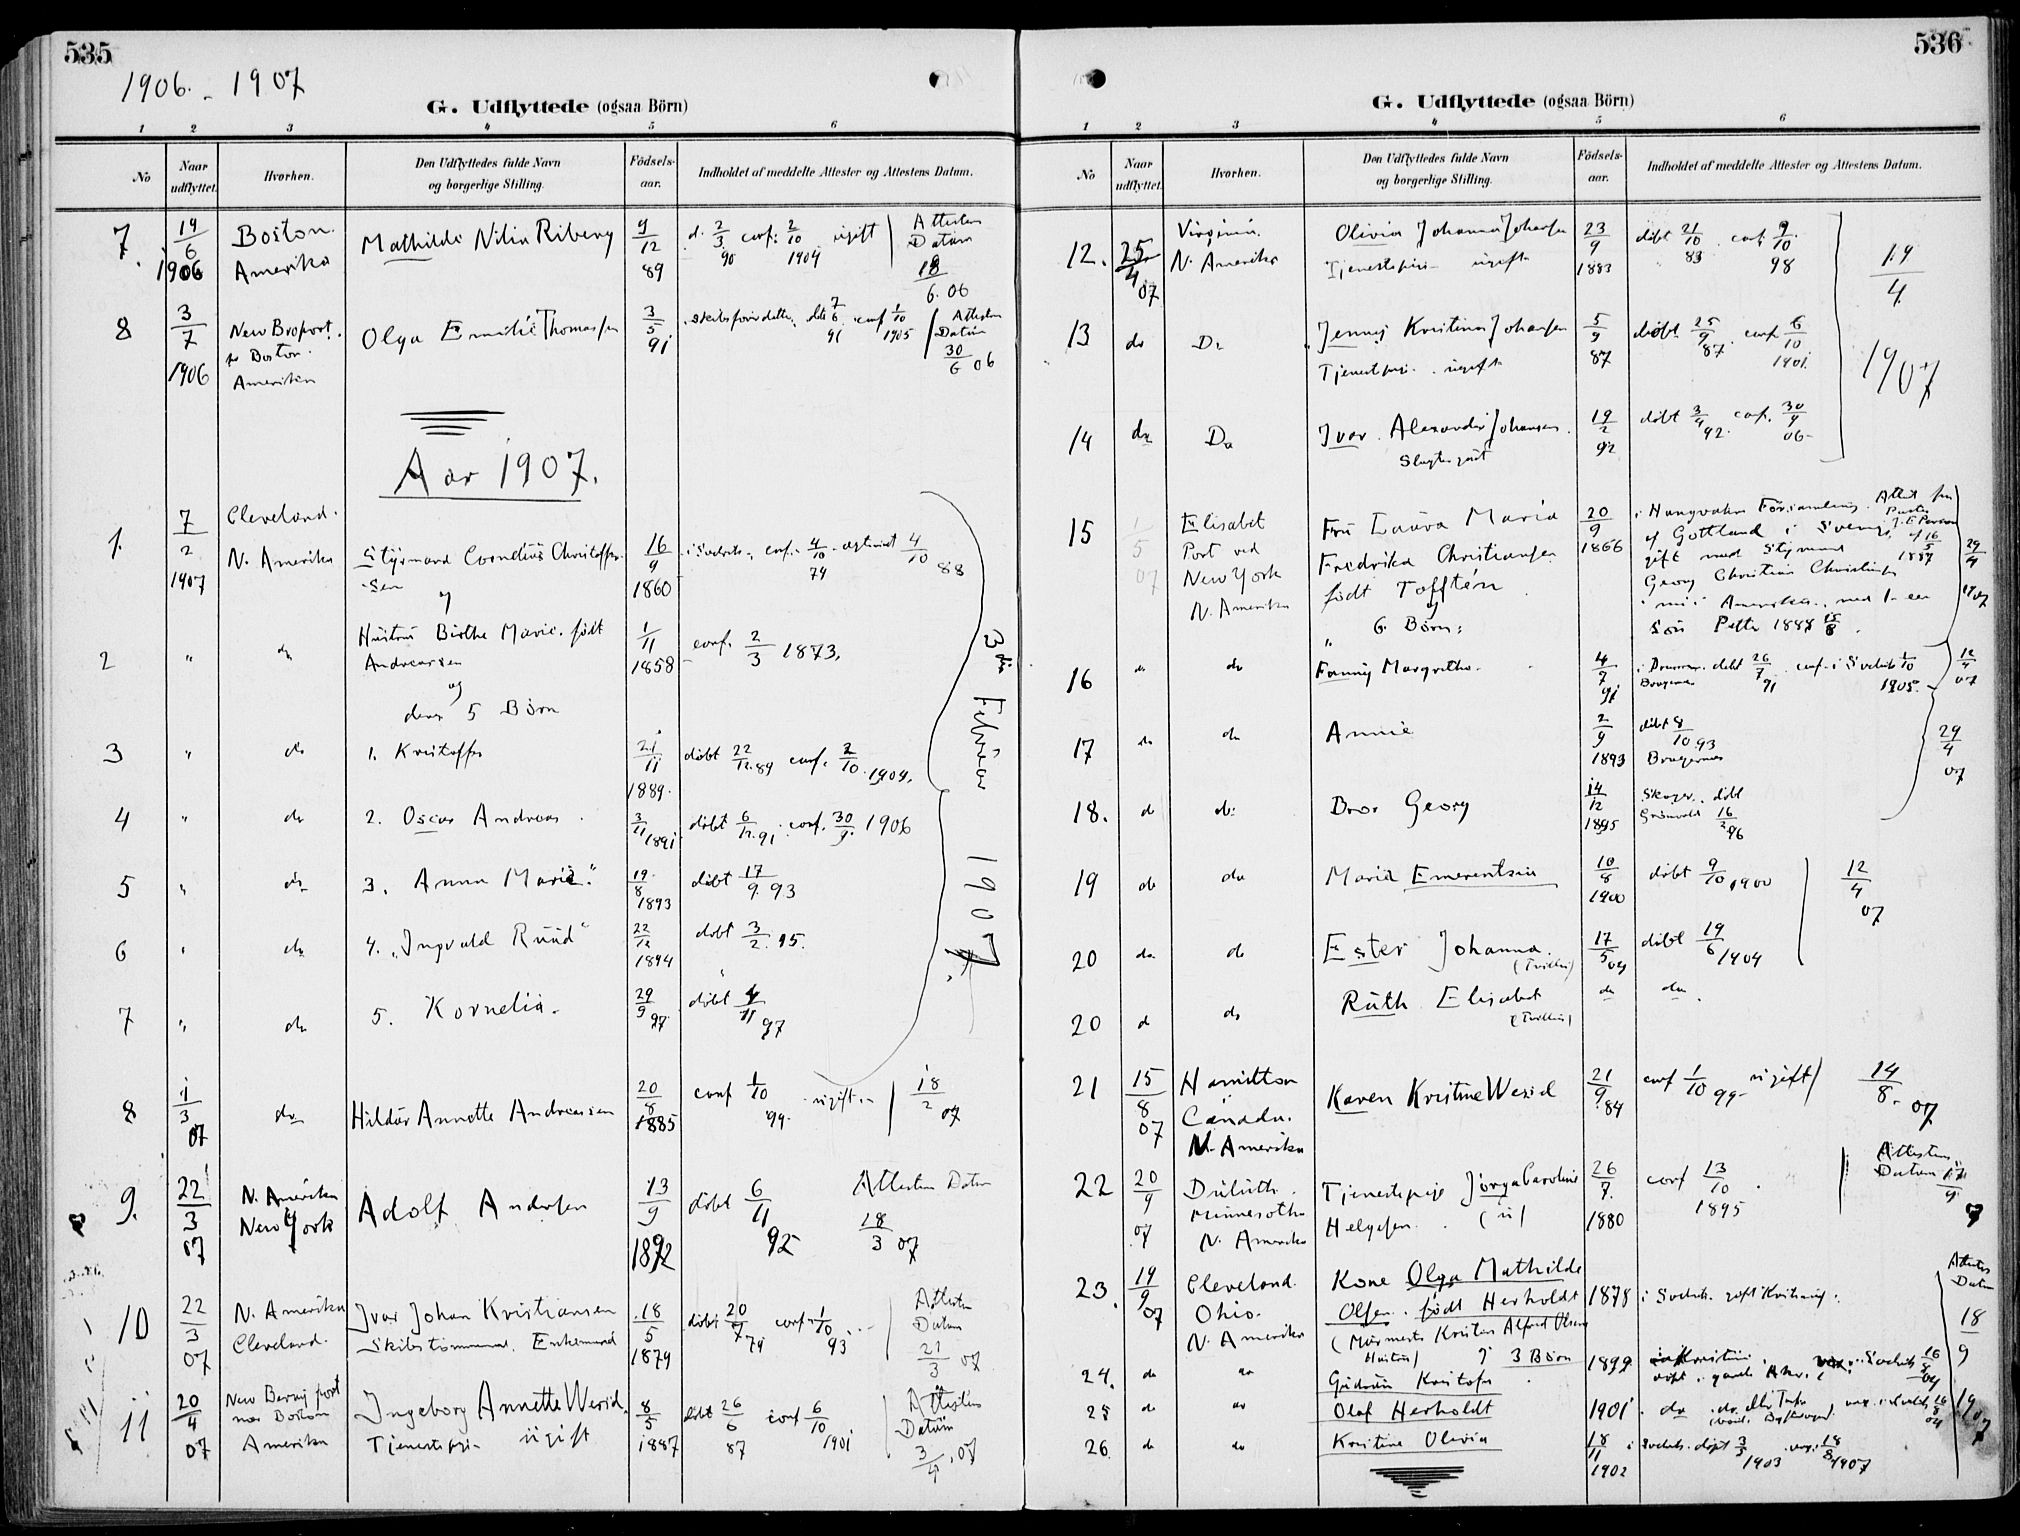 535
1906. - 1907
G. Udflyttede (ogsaa Börn)
1 2 3 4 5 6
No
Naar udflyttet.
Hvorhen.
Den Udflyttedes fulde Navn og borgerlige Stilling.
Födsels-aar.
Indholdet af meddelte Attester og Attestens Datum.
7. 19/6 1906 Boston. Amerika Mathilde 9/12 89 d. 2/3 90 conf. 2/10 1904 ugift Attestens Datum 18/6. 06
8 3/7 1906 Boston. Amerika Olga Emilie Thomassen 3/5 91 conf 1/10 1905 Attestens Datum 30/6 06
Aar 1907.
1. 7/2 1907 Cleveland. N. Amerika Styrmand Cornelius Christoffer-sen 16/9 1860 conf. 4/10 74 4/10 88
og
2 " do Hustru Birthe Marie. født Andreassen 1/11 1858 conf. 2/3 1873.
og
deres 5 Börn
3 " do 1. Kristoffer 21/11 1889. döbt 22/12. 89 conf. 2/10. 1904.
4 " do 2. Oscar Andreas 3/11 1891 döbt 6/12. 91. conf. 30/9. 1906
5 " do 3. Anna Marie." 19/8 1893 döbt 17/9. 93
6 " do 4. "Ingvald Ruud" 22/12 1894 döbt 3/2. 95.
7 " do 5. Kornelia. 29/9 97 döbt 4/11 97
3die Februar 1907.
8 1/3 07 do Hildur Annette Andreassen 20/8 1885 conf 1/10 99. ugift 18/2 07
9. 22/3 07 N. Amerika New York Adolf Andersen 13/9 1892 döbt 6/11 92 Attestens Datum 18/3 07
10 22/3 07 N. Amerika Cleveland. Ivar Johan Kristiansen Skibstømmermand. Enkemand 18/5 1879 döbt 20/7 79 conf. 1/10 93 Attestens Datum 21/3 07
11 20/4 07 Boston Amerika Ingeborg Annette Werid. Tjenestepige ugift 8/5 1887 döbt 26/6 87 conf 6/10 1901 Attestens Datum 3/4. 07
536
G. Udflyttede (ogsaa Börn)
1 2 3 4 5 6
No
Naar udflyttet.
Hvorhen.
Den Udflyttedes fulde Navn og borgerlige Stilling.
Födsels-aar.
Indholdet af meddelte Attester og Attestens Datum.
12. 25/4 07 Virginia. N. Amerika Olivia Johanna Johansen Tjenestepige ugift 23/9 1883 döbt 21/10 83 conf. 9/10. 98
13 do Do Jenny Kristine Johansen Tjenestepige. ugift 5/9 87 döbt 25/9 87. conf 6/10 1901.
14 do Do Ivar. Alexander Johansen. 19/2 92 döbt 3/4 92. conf. 30/9 06
19/4. 1907
15 1/5 07 Elisabet Port ved New York N. Amerika Fru Laura Maria Fredrika Christiansen født Tofftén 20/9 1866
og
6 Börn:
af Gottland i Sverige
gift med Styrmand 1887
Georg Christian Christiansen
i Amerika, med 1 en
Sön Petter 1888
29/4 1907
16 do do Fanny Margretha. 4/7 91 döbt 26/7 91 conf. i Svelvik 1/10 1905. 12/4 07
17 do do Annie 2/9 1893 döbt 8/10. 93 Bragernes 29/4 07
18. do do Bror Georg 14/12 1895 döbt 16/2 96
19 do do Maria Emerentsia 10/8 1900 döbt 9/10 1900
20 do do Ester Johanna. (Tvilling) 17/5 04 döbt 19/6 1904
12/4 07
20 do do Ruth Elisabet (Tvilling) do do.
21 15/8 07 Hamilton Canada. N. Amerika Karen Kristine Werid 21/9. 84 conf 1/10 99 ugift 14/8. 07
22 20/9 07 Duluth. Minnesotha N. Amerika Tjenestepige Jörga Caroline Helgesen. (u) 26/7. 1880 conf 13/10 1895 Attestens Datum 17/9
23. 19/9 07 Cleveland. Ohio. N. Amerika Kone Olga Mathilde Olsen. født Herholdt (Murmester Kristen Alfred Olsens Hustru) og 3 Börn 1878 i Svelvik. Attestens Datum 18/9 1907
24. do do Gudrun Kristofa 1899.
25 do do Olaf Herholdt 1901
26 do do Kristine Olivia 18/11 1902 i Svelvik. döpt 3/3 1903 18/8 1907